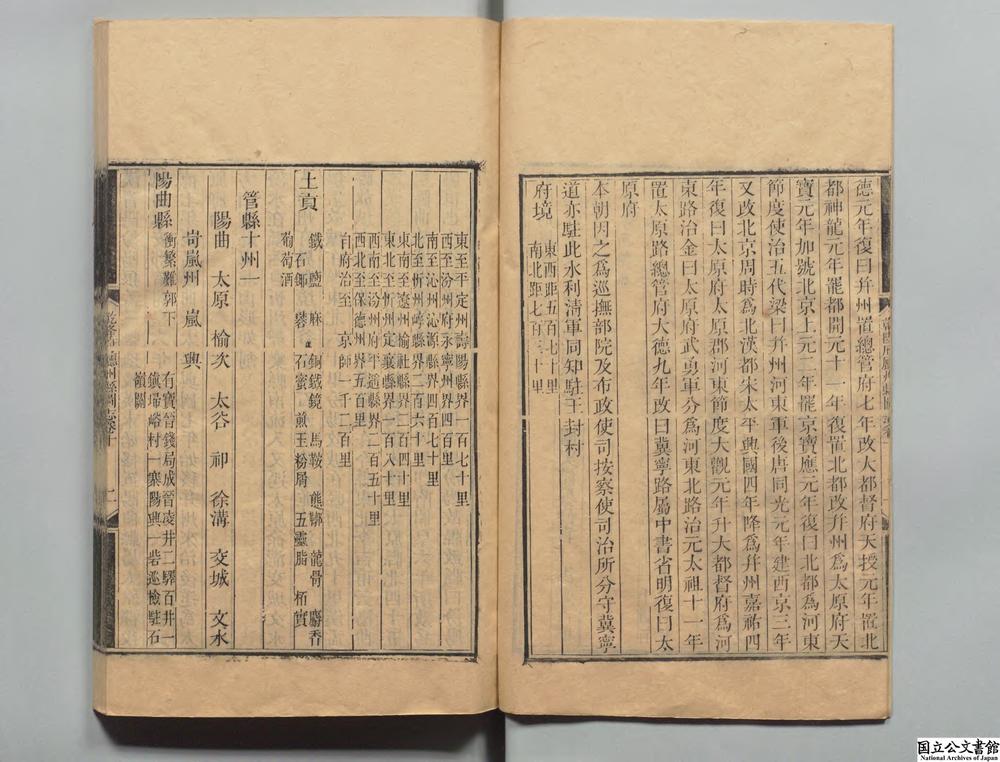 德元年復曰幷州置總管府七年改大都督府天授元年置北
都神龍元年罷都開元十一年復置北都改幷州爲太原府天
寶元年加號北京上元二年罷京寶應元年復曰北都爲河東
節度使治五代梁曰幷州河東軍後唐同光元年建西京三年
又改北京周時爲北漢都宋太平興國四年降爲幷州嘉祐四
年復曰太原府太原郡河東節度大觀元年升大都督府爲河
東路治金曰太原府武勇軍分爲河東北路治元太祖十一年
置太原路總管府大德九年改曰冀寧路屬中書省明復曰太
原府
本朝因之爲巡撫部院及布政使司按察使司治所分守冀寧
道亦駐此水利淸軍同知駐王封村
府境
東西距五百七十里
南北距七百三十里
東至平定州壽陽縣界一百七十里
西至汾州府永寧州界四百里
南至沁州沁源縣界四百七十里
北至忻州崞縣界二百六十里
東南至遼州榆社縣界二百四十里
東北至忻州定襄縣界一百八十里
西南至汾州府平遙縣界二百五十里
西北至保德州界五百里
自府治至 京師一千二百里
土貢
鐵 鹽 麻 銅鈸鏡 馬鞍 熊鞹 龍骨 麝香
石鉚 葠 石蜜 煎玉粉屑 五靈脂 柏實
葡萄酒
管縣十州一
陽曲 太原 榆次 太谷 祁 徐溝 交城 文水
岢嵐州 嵐 興
陽曲縣
衝繁難郭下
有寶晉錢局成晉凌井二驛百井一
鎭埽峪村一寨陽興一砦巡檢駐石
嶺關
二
国立公文書館
National Archives of Japan